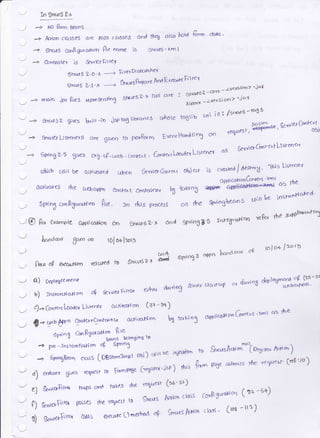 In Struts 2.x
→ No form beans
→ Action classes are POJO classes and they also hold form data.
→ Struts configuration file name is Struts.xml
→ Controller is ServletFilter
Struts 2.0.x → FilterDispatcher
Struts 2.1.x → StrutsPrepareAndExecuteFilter
→ main jar files representing Struts 2.x are : struts2-core-<version>.jar
xwork-<version>.jar
→ Struts 2 gives built-in jsp taglibraries whose taglib uri is : /struts-tags
→ Servlet Listeners are given to perform EventHandling on request, session, ServletContext
→ Spring 2.5 gives org.sf.web.context.ContextLoaderListener as ServletContextListener
which will be activated when ServletContext object is created/destroy. This Listener
activates the webappn context container by taking applicationContext.xml as the
spring configuration file. In this process all the spring beans will be instantiated.
For Example application on Struts 2.x and spring 2.5 Integration refer the supplementary
handout given on 10/04/2013
Flow of execution related to Struts 2.x and spring 2.5 appn handout of 10/04/2013
a) Deployment
b) Instantiation of ServletFilter either during server startup or during deployment of webappn.
c) → ContextLoaderListener activation (27-29)
→ webAppn ContextContainer activation by taking applicationContext.xml as the
spring Configuration file
→ pre-instantiation of beans belonging to Spring
d) enduser gives request to form page (register.jsp) this form page submits the request
e) ServletFilter traps and takes the request (34-37)
f) ServletFilter passes the request to Struts Action class Configuration (52-54)
g) ServletFilter calls execute() method of Struts Action class. (101-112)